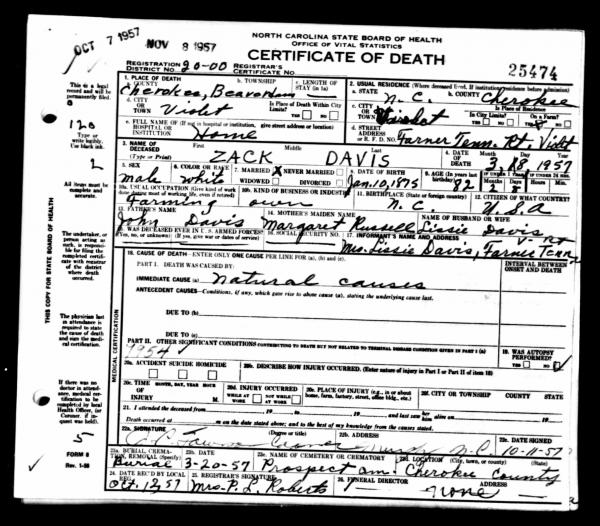 OCT 7 1957
NOV 8 1957
NORTH CAROLINA STATE BOARD OF HEALTH
OFFICE OF VITAL STATISTICS
CERTIFICATE OF DEATH
REGISTRATION DISTRICT NO. 20-00 REGISTRAR'S CERTIFICATE NO.
25474
1. PLACE OF DEATH
a. COUNTY Cherokee, b. TOWNSHIP Beaverdam c. LENGTH OF STAY (in 1a)
2. USUAL RESIDENCE (Where deceased lived. If institution: residence before admission)
a. STATE N.C. b. COUNTY Cherokee
d. CITY OR TOWN Violet Is Place of Death Within City Limits? YES NO
c. CITY OR TOWN Is Place of Residence In City Limits? YES NO On a Farm? YES NO
e. FULL NAME OF (If not in hospital or institution, give street address or location) HOSPITAL OR INSTITUTION Home
d. STREET ADDRESS OR R.F.D. NO. Farner Tenn. Rt. Violet
3. NAME OF DECEASED (Type or Print) First Middle Last ZACK DAVIS
4. DATE OF DEATH Month Day Year 3, 18, 1957
5. SEX male
6. COLOR OR RACE white
7. MARRIED X NEVER MARRIED WIDOWED DIVORCED
8. DATE OF BIRTH Jan. 10, 1875
9. AGE (In years last birthday) 82 Months 2 Days 8 Hours Min.
10a. USUAL OCCUPATION (Give kind of work done during most of working life, even if retired) Farming
10b. KIND OF BUSINESS OR INDUSTRY own
11. BIRTHPLACE (State or foreign country) N.C.
12. CITIZEN OF WHAT COUNTRY? U.S.A
13. FATHER'S NAME John Davis
14. MOTHER'S MAIDEN NAME Margaret Russell
NAME OF HUSBAND OR WIFE Lissie Davis
15. WAS DECEASED EVER IN U.S. ARMED FORCES? (Yes, no, or unknown) (If yes, give war or dates of service)
16. SOCIAL SECURITY NO.
17. INFORMANT'S NAME AND ADDRESS Mrs. Lissie Davis, Farner Tenn
18. CAUSE OF DEATH—ENTER ONLY ONE CAUSE PER LINE FOR (a), (b), and (c)
INTERVAL BETWEEN ONSET AND DEATH
PART I. DEATH WAS CAUSED BY:
IMMEDIATE CAUSE (a) Natural causes
ANTECEDENT CAUSES—Conditions, if any, which gave rise to above cause (a), stating the underlying cause last.
DUE TO (b)
DUE TO (c)
PART II. OTHER SIGNIFICANT CONDITIONS CONTRIBUTING TO DEATH BUT NOT RELATED TO TERMINAL DISEASE CONDITION GIVEN IN PART I (a)
19. WAS AUTOPSY PERFORMED? YES NO
7954
20a. ACCIDENT SUICIDE HOMICIDE
20b. DESCRIBE HOW INJURY OCCURRED. (Enter nature of injury in Part I or Part II of item 18)
20c. TIME OF INJURY HOUR MONTH, DAY, YEAR M.
20d. INJURY OCCURRED WHILE AT WORK NOT WHILE AT WORK
20e. PLACE OF INJURY (e.g., in or about home, farm, factory, street, office bldg., etc.)
20f. CITY OR TOWNSHIP COUNTY STATE
21. I attended the deceased from 19 to 19 and last saw her alive on 19
Death occurred at m. on the date stated above; and to the best of my knowledge, from the causes stated.
22a. SIGNATURE (Degree or title) Coroner
22b. ADDRESS N.C.
22c. DATE SIGNED 10-11-57
23a. BURIAL, CREMATION, REMOVAL (Specify) Burial
23b. DATE 3-20-57
23c. NAME OF CEMETERY OR CREMATORY Prospect Cem.
23d. LOCATION (City, town, or county) (State) Cherokee County
24. DATE REC'D BY LOCAL REG. Oct. 12, 57
25. REGISTRAR'S SIGNATURE Mrs. P. L. Roberts
26. FUNERAL DIRECTOR ADDRESS none
This is a legal record and will be permanently filed.
120
Type or write legibly. Use black ink.
All items must be complete and accurate.
The undertaker, or person acting as such, is responsible for filing the completed certificate with registrar of the district where death occurred.
The physician last in attendance is required to state the cause of death and sign the medical certification.
If there was no doctor in attendance, medical certification to be completed by local Health Officer, (or Coroner, if inquest was held).
5
FORM 8
Rev. 1-56
THIS COPY FOR STATE BOARD OF HEALTH
MEDICAL CERTIFICATION